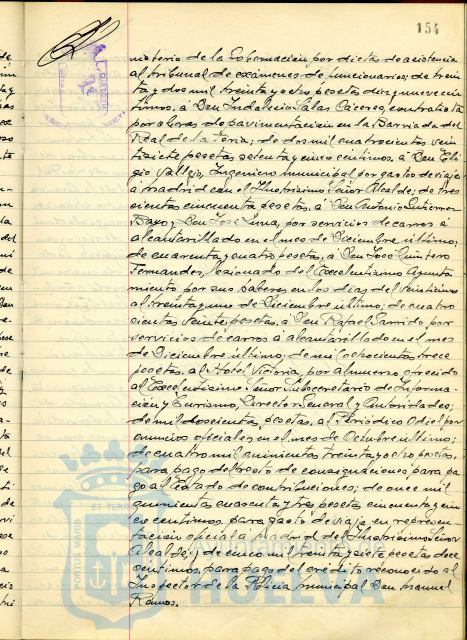 154
nisterio de la Gobernación, por dietas de asistencia
al tribunal de exámenes de funcionarios; de trein
ta y dos mil treinta y ocho pesetas diez y nueve cén
timos, a Don Indalecio Salas Cáceres, contratista
por obras de pavimentación en la Barriada del
Real de la Feria; de dos mil cuatrocientas vein
tisiete pesetas setenta y cinco céntimos, a Don Eli
gio Vallejo, Ingeniero municipal por gastos de viaje
a Madrid con el Ilustrísimo Señor Alcalde; de tres
cientas cincuenta pesetas, a Don Antonio Gutiérrez
Bayo, Don José Luna, por servicios de carros a
alcantarillado en el mes de Diciembre último;
de cuarenta y cuatro pesetas, a Don José Quintero
Fernandez, lesionado del Excelentísimo Ayunta
miento por sus haberes en los días del veintiuno
al treinta y uno de Diciembre último; de cuatro
cientas veinte pesetas, a Don Rafael Garrido por
servicios de carros a alcantarillado en el mes
de Diciembre último; de mil ochocientas trece
pesetas, al Hotel Victoria, por almuerzo ofrecido
al Excelentísimo Señor Subsecretario de Informa
ción y Turismo, Director General y Autoridades;
de mil doscientas pesetas, al Periódico Odiel por
anuncios oficiales en el mes de Octubre último;
de cuatro mil quinientas treinta y ocho pesetas,
para pago del resto de consignaciones para pa
go al Estado de contribuciones; de once mil
quinientas cuarenta y tres pesetas cincuenta y cin
co céntimos para gasto de viaje en represen
tación oficial a Madrid del Ilustrísimo Señor
Alcalde; de cinco mil treinta y siete pesetas doce
céntimos, para pago del crédito reconocido al
Inspector de la Policía Municipal Don Manuel
Ramos.
PORTUS MARIS
ET TERRAE
HUELVA